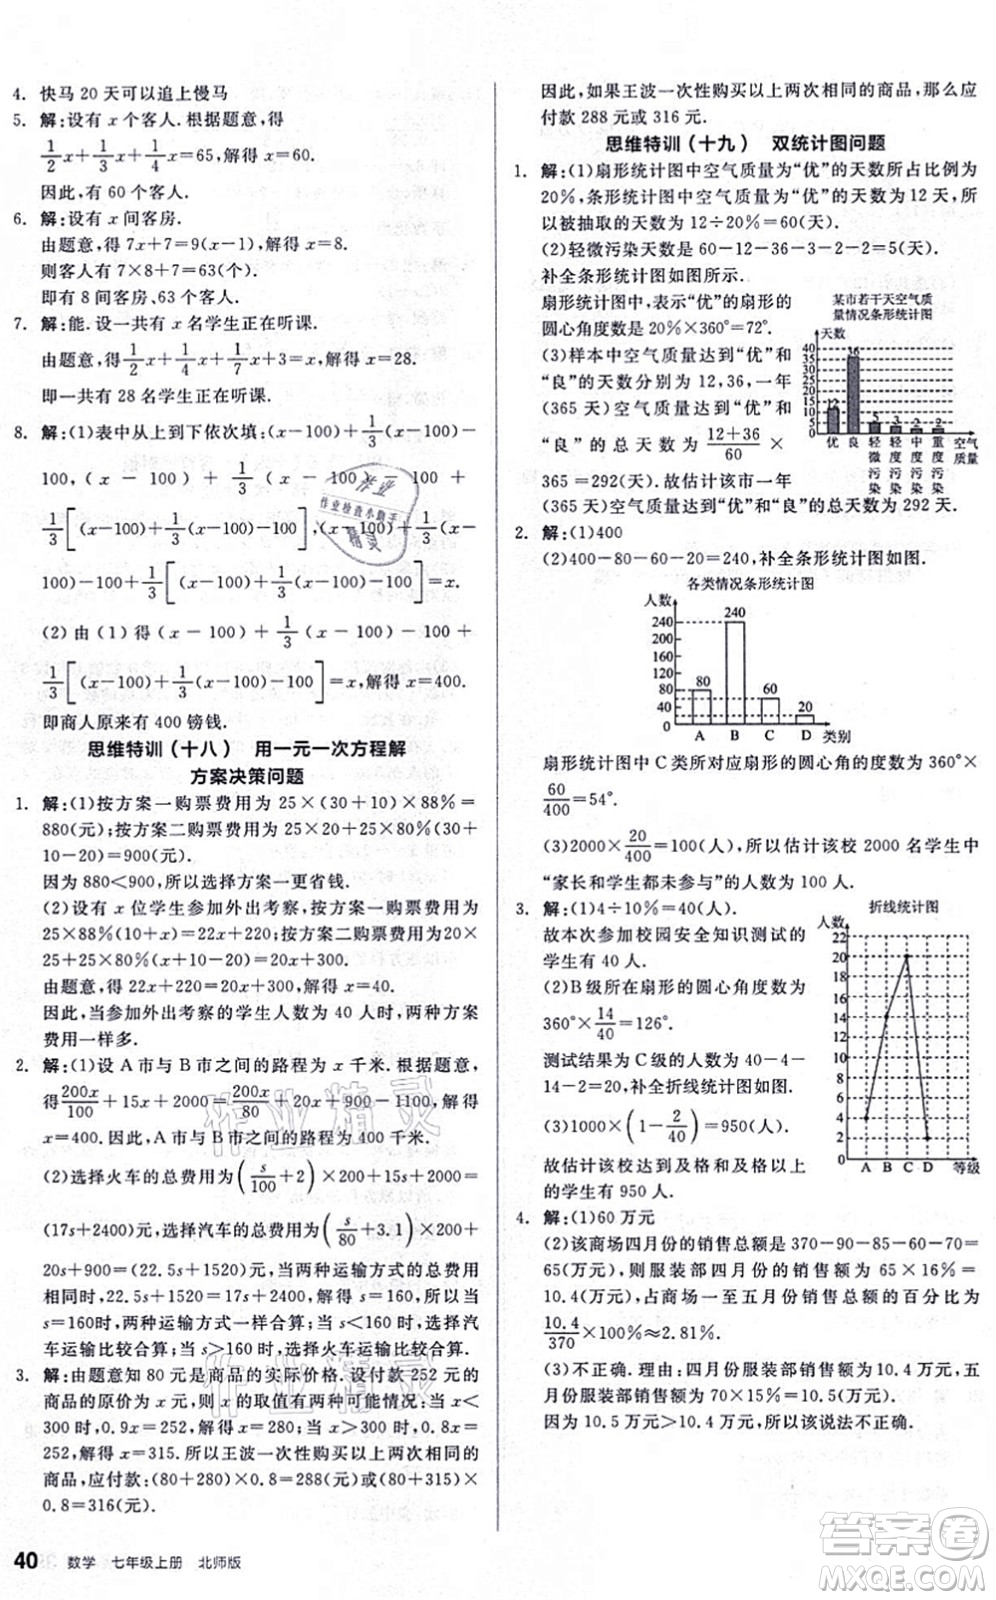 4. 快马 20 天可以追上慢马
5. 解:设有 x 个客人.根据题意,得
1/2x+1/3x+1/4x=65,解得 x=60.
因此,有 60 个客人.
6. 解:设有 x 间客房.
由题意,得 7x+7=9(x-1),解得 x=8.
则客人有 7×8+7=63(个).
即有 8 间客房、63 个客人.
7. 解:能.设一共有 x 名学生正在听课.
由题意,得1/2x+1/4x+1/7x+3=x,解得 x=28.
即一共有 28 名学生正在听课.
8. 解:(1)表中从上到下依次填:(x-100)+1/3(x-100)-
100,(x-100)+1/3(x-100)-100+
1/3[(x-100)+1/3(x-100)-100],(x-100)+1/3(x-
100)-100+1/3[(x-100)+1/3(x-100)-100]=x.
(2)由(1)得(x-100)+1/3(x-100)-100+
1/3[(x-100)+1/3(x-100)-100]=x,解得 x=400.
即商人原来有 400 镑钱.
思维特训(十八) 用一元一次方程解
方案决策问题
1. 解:(1)按方案一购票费用为 25×(30+10)×88%=
880(元);按方案二购票费用为 25×20+25×80%(30
+10-20)=900(元).
因为 880<900,所以选择方案一更省钱.
(2)设有 x 位学生参加外出考察,按方案一购票费用为
25×88%(x+10)=22x+220;按方案二购票费用为20×
25+25×80%(x+10-20)=20x+300.
由题意,得 22x+220=20x+300,解得 x=40.
因此,当参加外出考察的学生人数为 40 人时,两种方案
费用一样多.
2. 解:(1)设 A 市与 B 市之间的路程为 x 千米.根据题意,
得200x/100+15x+2000=200x/80+20x+900-1100,解得
x=400.因此,A 市与 B 市之间的路程为 400 千米.
(2)选择火车的总费用为(s/100+2)×200+15s+2000=
(17s+2400)元,选择汽车的总费用为(s/80+3.1)×200+
20s+900=(22.5s+1520)元.当两种运输方式的总费用
相同时,17s+2400=22.5s+1520,解得 s=160.所以当
s=160时,两种运输方式一样合算;当 s<160时,选择汽
车运输比较合算;当 s>160时,选择火车运输比较合算.
3. 解:由题意知 80 元是商品的实际价格.设打折前商品的
价格为 x 元,则 x 的取值有两种可能情况:当打九折
时,90%x=252,解得 x=280;当打八折时,80%x=
252,解得 x=315.所以王波一次性购买以上两次相同的
商品,应付款:(80+280)×0.8=288(元)或(80+315)×
0.8=316(元).
因此,如果王波一次性购买以上两次相同的商品,那么应
付款 288 元或 316 元.
思维特训(十九) 双统计图问题
1. 解:(1)扇形统计图中空气质量为“优”的天数所占比例为
20%,条形统计图中空气质量为“优”的天数为 12 天,所
以被抽取的天数为 12÷20%=60(天).
(2)轻微污染天数是 60-12-36-3-2-2=5(天).
补全条形统计图如图所示.
扇形统计图中,表示“优”的扇形的
圆心角度数是 20%×360°=72°.
(3)样本中空气质量达到“优”和
“良”的天数分别为 12,36,一年
(365 天)空气质量达到“优”和
“良”的总天数为12+36/60×
365=292(天).故估计该市一年
(365 天)空气质量达到“优”和“良”的总天数为 292 天.
某市若干天空气质
量情况条形统计图
天数
40
35
30
25
20
15
10
5
0
12 36 5 3 2 2
优 良 轻微污染 轻度污染 中度污染 重度污染 空气质量
2. 解:(1)400
(2)400-80-60-20=240,补全条形统计图如图.
各类情况条形统计图
人数
240
200
160
120
80
40
0
80 240 60 20
A B C D 类别
扇形统计图中 C 类所对应扇形的圆心角的度数为 360°
×60/400=54°.
(3)2000×20/400=100(人),所以估计该校 2000 名学生中
“家长和学生都未参与”的人数为 100 人.
3. 解:(1)4÷10%=40(人).
故本次参加校园安全知识测试的
学生有 40 人.
(2)B级所在扇形的圆心角度数为
360°×14/40=126°.
测试结果为 C 级的人数为 40-4-
14-2=20,补全折线统计图如图.
(3)1000×(1-2/40)=950(人).
故估计该校达到及格和及格以上
的学生有 950 人.
折线统计图
人数
22
20
18
16
14
12
10
8
6
4
2
0
A B C D 等级
4. 解:(1)60 万元
(2)该商场四月份的销售总额是 370-90-85-60-70=
65(万元),则服装部四月份的销售额为 65×16%=
10.4(万元),占商场一至五月份销售总额的百分比为
10.4/370×100%≈2.81%.
(3)不正确. 理由:四月份服装部销售额为 10.4万元,五
月份服装部销售额为 70×15%=10.5(万元).
因为 10.5 万元>10.4 万元,所以该说法不正确.
40 数学 七年级上册 北师版
作业
作业检查小助手
精灵
作业精灵
作业精灵
答案圈
MXQE.COM